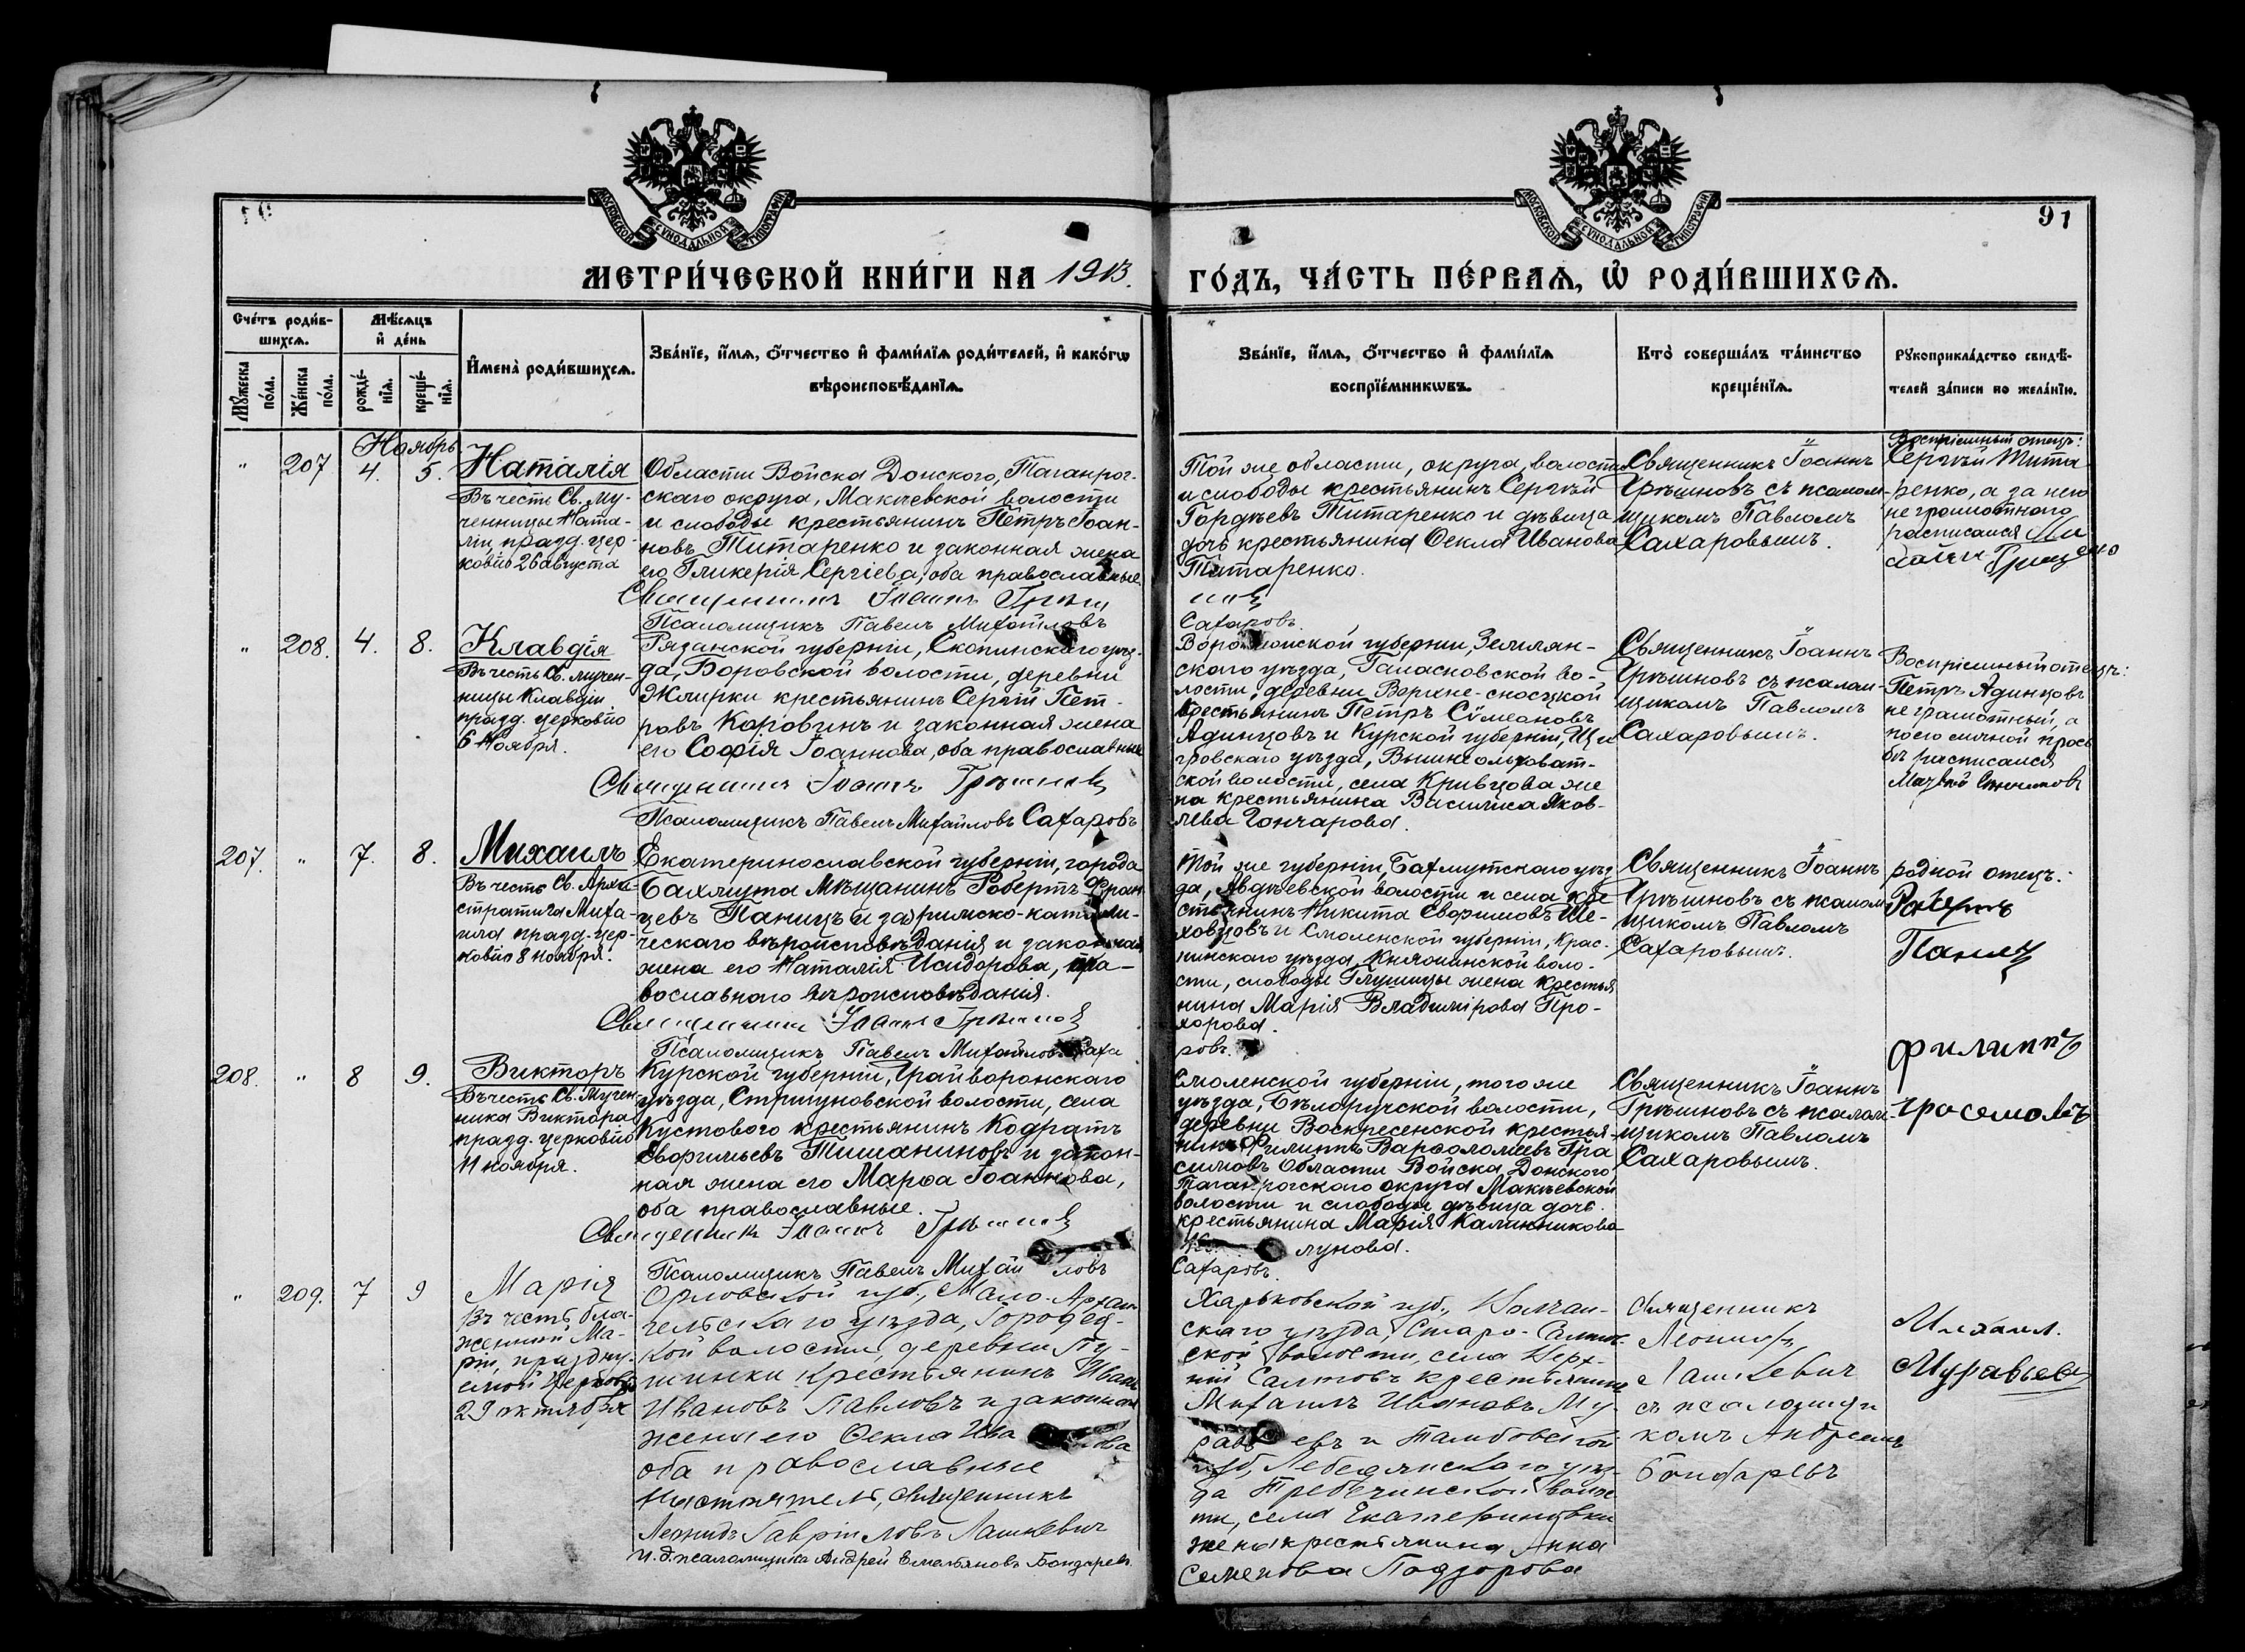 МОСКОВСКОЙ СѴНОДАЛЬНОЙ ТИПОГРАФІИ
МОСКОВСКОЙ СѴНОДАЛЬНОЙ ТИПОГРАФІИ
91
МЕТРИ́ЧЕСКОЙ КНИ́ГИ НА 1913. ГО́ДЪ, ЧА́СТЬ ПЕ́РВАѦ, Ѡ҆ РОДИ́ВШИХСѦ.
Сче́тъ роди́в-
шихсѧ.
Мꙋ́жеска
по́ла.
Же́нска
по́ла.
Мѣ́сѧцъ
и҆ де́нь
рожде́-
нїѧ.
креще́-
нїѧ.
И҆мена̀ роди́вшихсѧ.
Зва́нїе, и҆́мѧ, ѻ҆́тчество и҆ фами́лїѧ роди́телей, и҆ како́гѡ
вѣроисповѣ́данїѧ.
Зва́нїе, и҆́мѧ, ѻ҆́тчество и҆ фами́лїѧ
воспрїе́мникѡвъ.
Кто̀ соверша́лъ та́инство
креще́нїѧ.
Рꙋкоприкла́дство свидѣ́-
телей за́писи по жела́нїю.
Ноябрь
" 207 4. 5.
Наталія
Въ честь Св. му-
ченницы Ната-
ліи, празд. цер-
ковію 26 августа
Области Войска Донского, Таганрог-
скаго округа, Макѣевской волости
и слободы крестьянинъ Петръ Іоан-
новъ Титаренко и законная жена
его Гликерія Сергіева, оба православные.
Священникъ Іоаннъ Грѣш
Псаломщикъ Павелъ Михайловъ
Той же области, округа, волости
и слободы крестьянинъ Сергѣй
Гордѣевъ Титаренко и дѣвица
дочь крестьянина Ѳекла Иванова
Титаренко.
новъ
Сахаровъ.
Священникъ Іоаннъ
Грѣшновъ съ псалом-
щикомъ Павломъ
Сахаровымъ.
Воспріемный отецъ:
Сергѣй Тита
ренко, а за него
неграмотного
расписался
" 208. 4. 8.
Клавдія
Въ честь Св. мучен-
ницы Клавдіи
празд. церковію
6 Ноября.
Рязанской губерніи, Скопинскаго уѣз-
да, Боровской волости, деревни
Жмурки крестьянинъ Сергій Пет-
ровъ Коровинъ и законная жена
его Софія Іоаннова, оба православные
Священникъ Іоаннъ Грѣшновъ
Псаломщикъ Павелъ Михайловъ Сахаровъ
Воронежской губерніи, Землян-
скаго уѣзда, Голосновской во-
лости, деревни Верхне-
крестьянинъ Петръ Сѵмеоновъ
Адинцовъ и Курской губерніи, Щи
гровскаго уѣзда, Вышнеольховат-
ской волости, села Кривцова же
на крестьянина Василиса Яков-
лева Гончарова.
Священникъ Іоаннъ
Грѣшновъ съ псалом-
щикомъ Павломъ
Сахаровымъ.
Воспріемный отецъ:
Петръ Адинцовъ
неграмотный, а
по его личной прось
бѣ расписался
207. " 7. 8.
Михаилъ
Въ честь Св. Архи-
стратига Миха-
ила празд. цер-
ковію 8 ноября.
Екатеринославской губерніи, города
Бахмута мѣщанинъ Робертъ Фран-
цевъ Паницъ римско-католи-
ческаго вѣроисповѣданія и законная
жена его Наталія Исидорова, пра-
вославнаго вѣроисповѣданія.
Священникъ Іоаннъ Грѣшновъ
Псаломщикъ Павелъ Михайловъ Саха
Той же губерніи, Бахмутскаго уѣз
да, Авдѣевской волости и села кре
стьянинъ Никита Ше-
ховцовъ и Смоленской губерніи, Крас-
нинскаго уѣзда, Княжинской воло-
сти, слободы Глушицы жена крестья
нина Марія Владимірова Про-
хорова.
ровъ.
Священникъ Іоаннъ
Грѣшновъ съ псалом
щикомъ Павломъ
Сахаровымъ.
родной отецъ:
Робертъ
Паницъ
208. " 8 9.
Викторъ
Въ честь Св. Мучен-
ника Виктора
празд. церковію
11 ноября.
Курской губерніи, Грайворонскаго
уѣзда, Стригуновской волости, села
Кустового крестьянинъ Кодратъ
Тишаниновъ и закон-
ная жена его Марѳа Іоаннова,
оба православные.
Священникъ Іоаннъ Грѣшновъ
Псаломщикъ Павелъ Михайловъ
Смоленской губерніи, того же
уѣзда, Бѣлоручской волости,
деревни Воскресенской крестья-
нинъ Филиппъ Варѳоломеевъ Гра
симовъ Области Войска Донского
Таганрогскаго округа Макѣевской
волости и слободы дѣвица дочь
крестьянина Марія Калинникова
лунова.
Сахаровъ.
Священникъ Іоаннъ
Грѣшновъ съ псалом-
щикомъ Павломъ
Сахаровымъ.
Филиппъ
" 209. 7 9
Марія
Въ честь бла-
женной Ма-
ріи, праздну-
емой Церковію
29 октября
Орловской губ., Мало-Архан-
гельскаго уѣзда, Городец-
кой волости, деревни
крестьянинъ Иванъ
Ивановъ Павловъ и законная
жена его Ѳекла
оба православные
Настоятель, священникъ
Леонидъ Гавріиловъ Лашкевич
и. д. псаломщика Андрей Емельяновъ Бондарев.
Харьковской губ., Волчан-
скаго уѣзда, Старо-Салтов-
ской волости, села Верх-
ній Салтовъ крестьянинъ
Михаилъ Ивановъ Му-
равьевъ и Тамбовской
губ, Лебедянскаго уѣз-
да волос
ти, села Екатериновки
жена крестьянина Анна
Семенова Подзорова
Священникъ
Леонидъ
Лашкевич
съ псаломщи
комъ Андреемъ
Бондаревъ
Михаил.
Муравьевъ